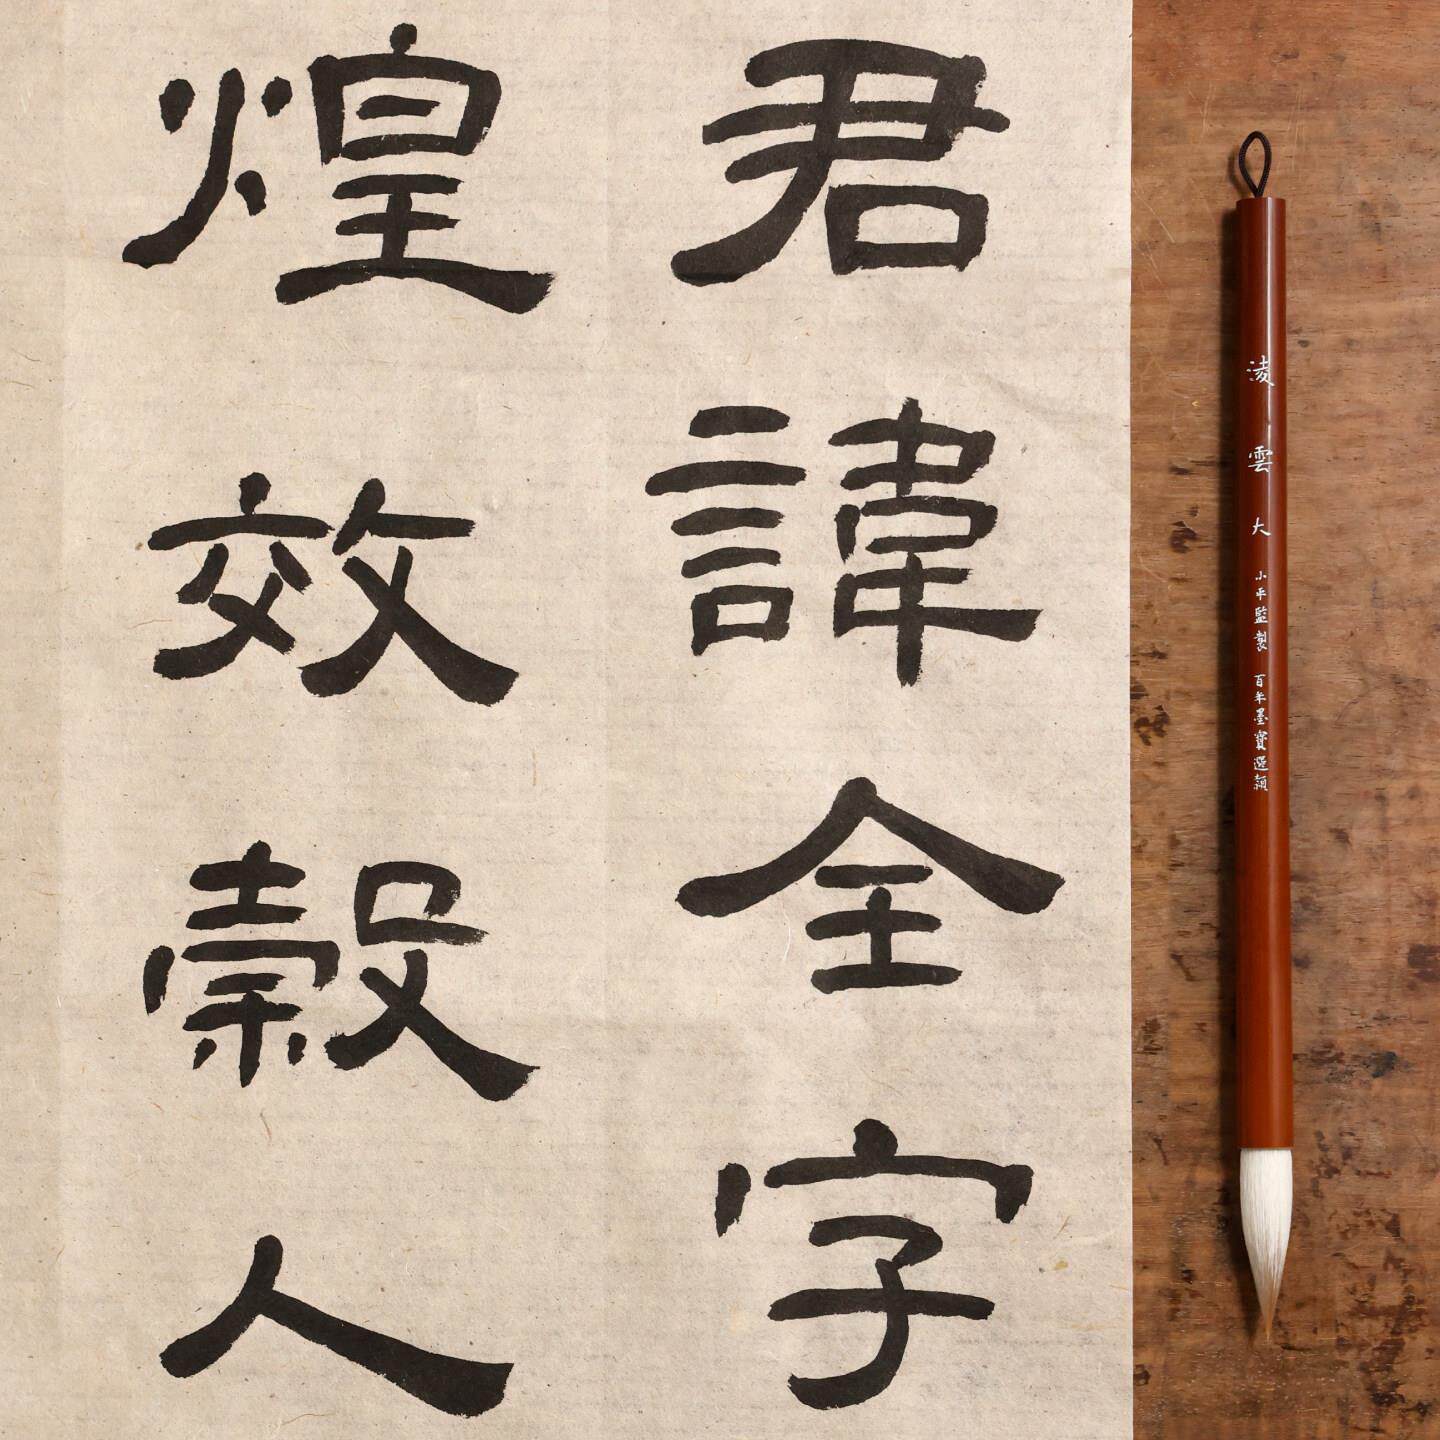 君諱全字
煌效穀人
淩雲大
小平監製 百年墨寶選穎